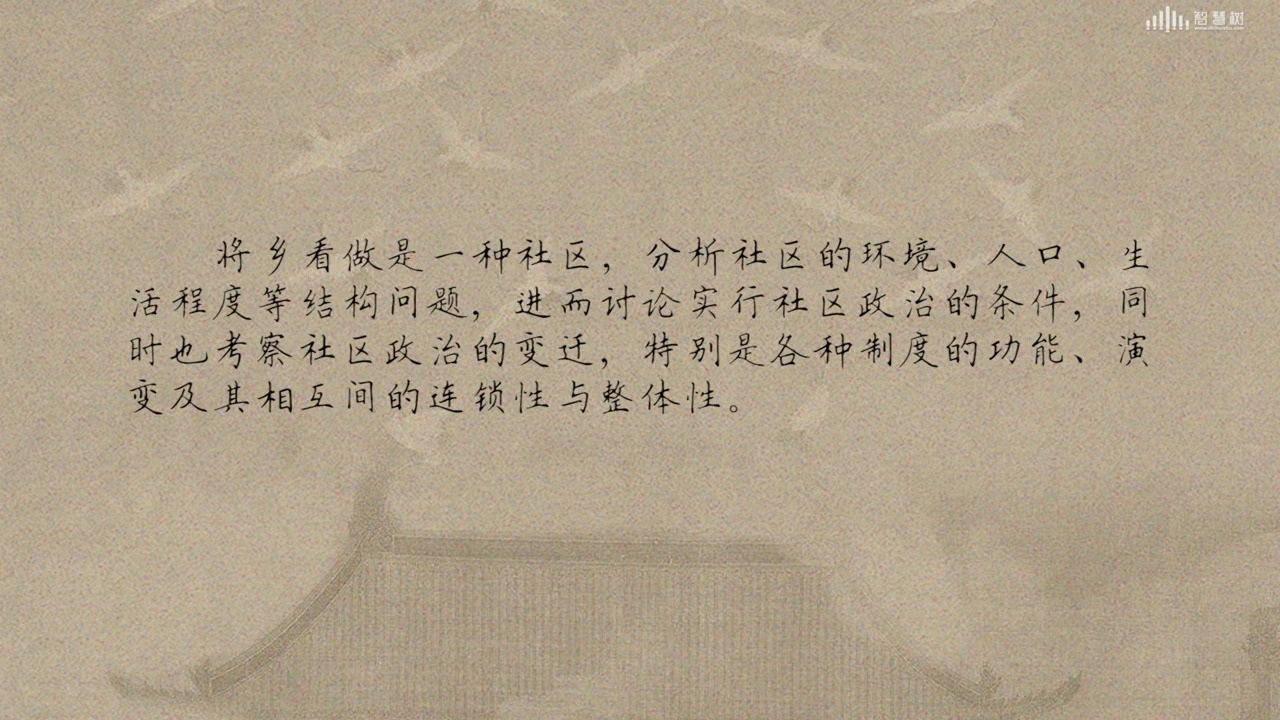 智慧树
将乡看做是一种社区，分析社区的环境、人口、生
活程度等结构问题，进而讨论实行社区政治的条件，同
时也考察社区政治的变迁，特别是各种制度的功能、演
变及其相互间的连锁性与整体性。